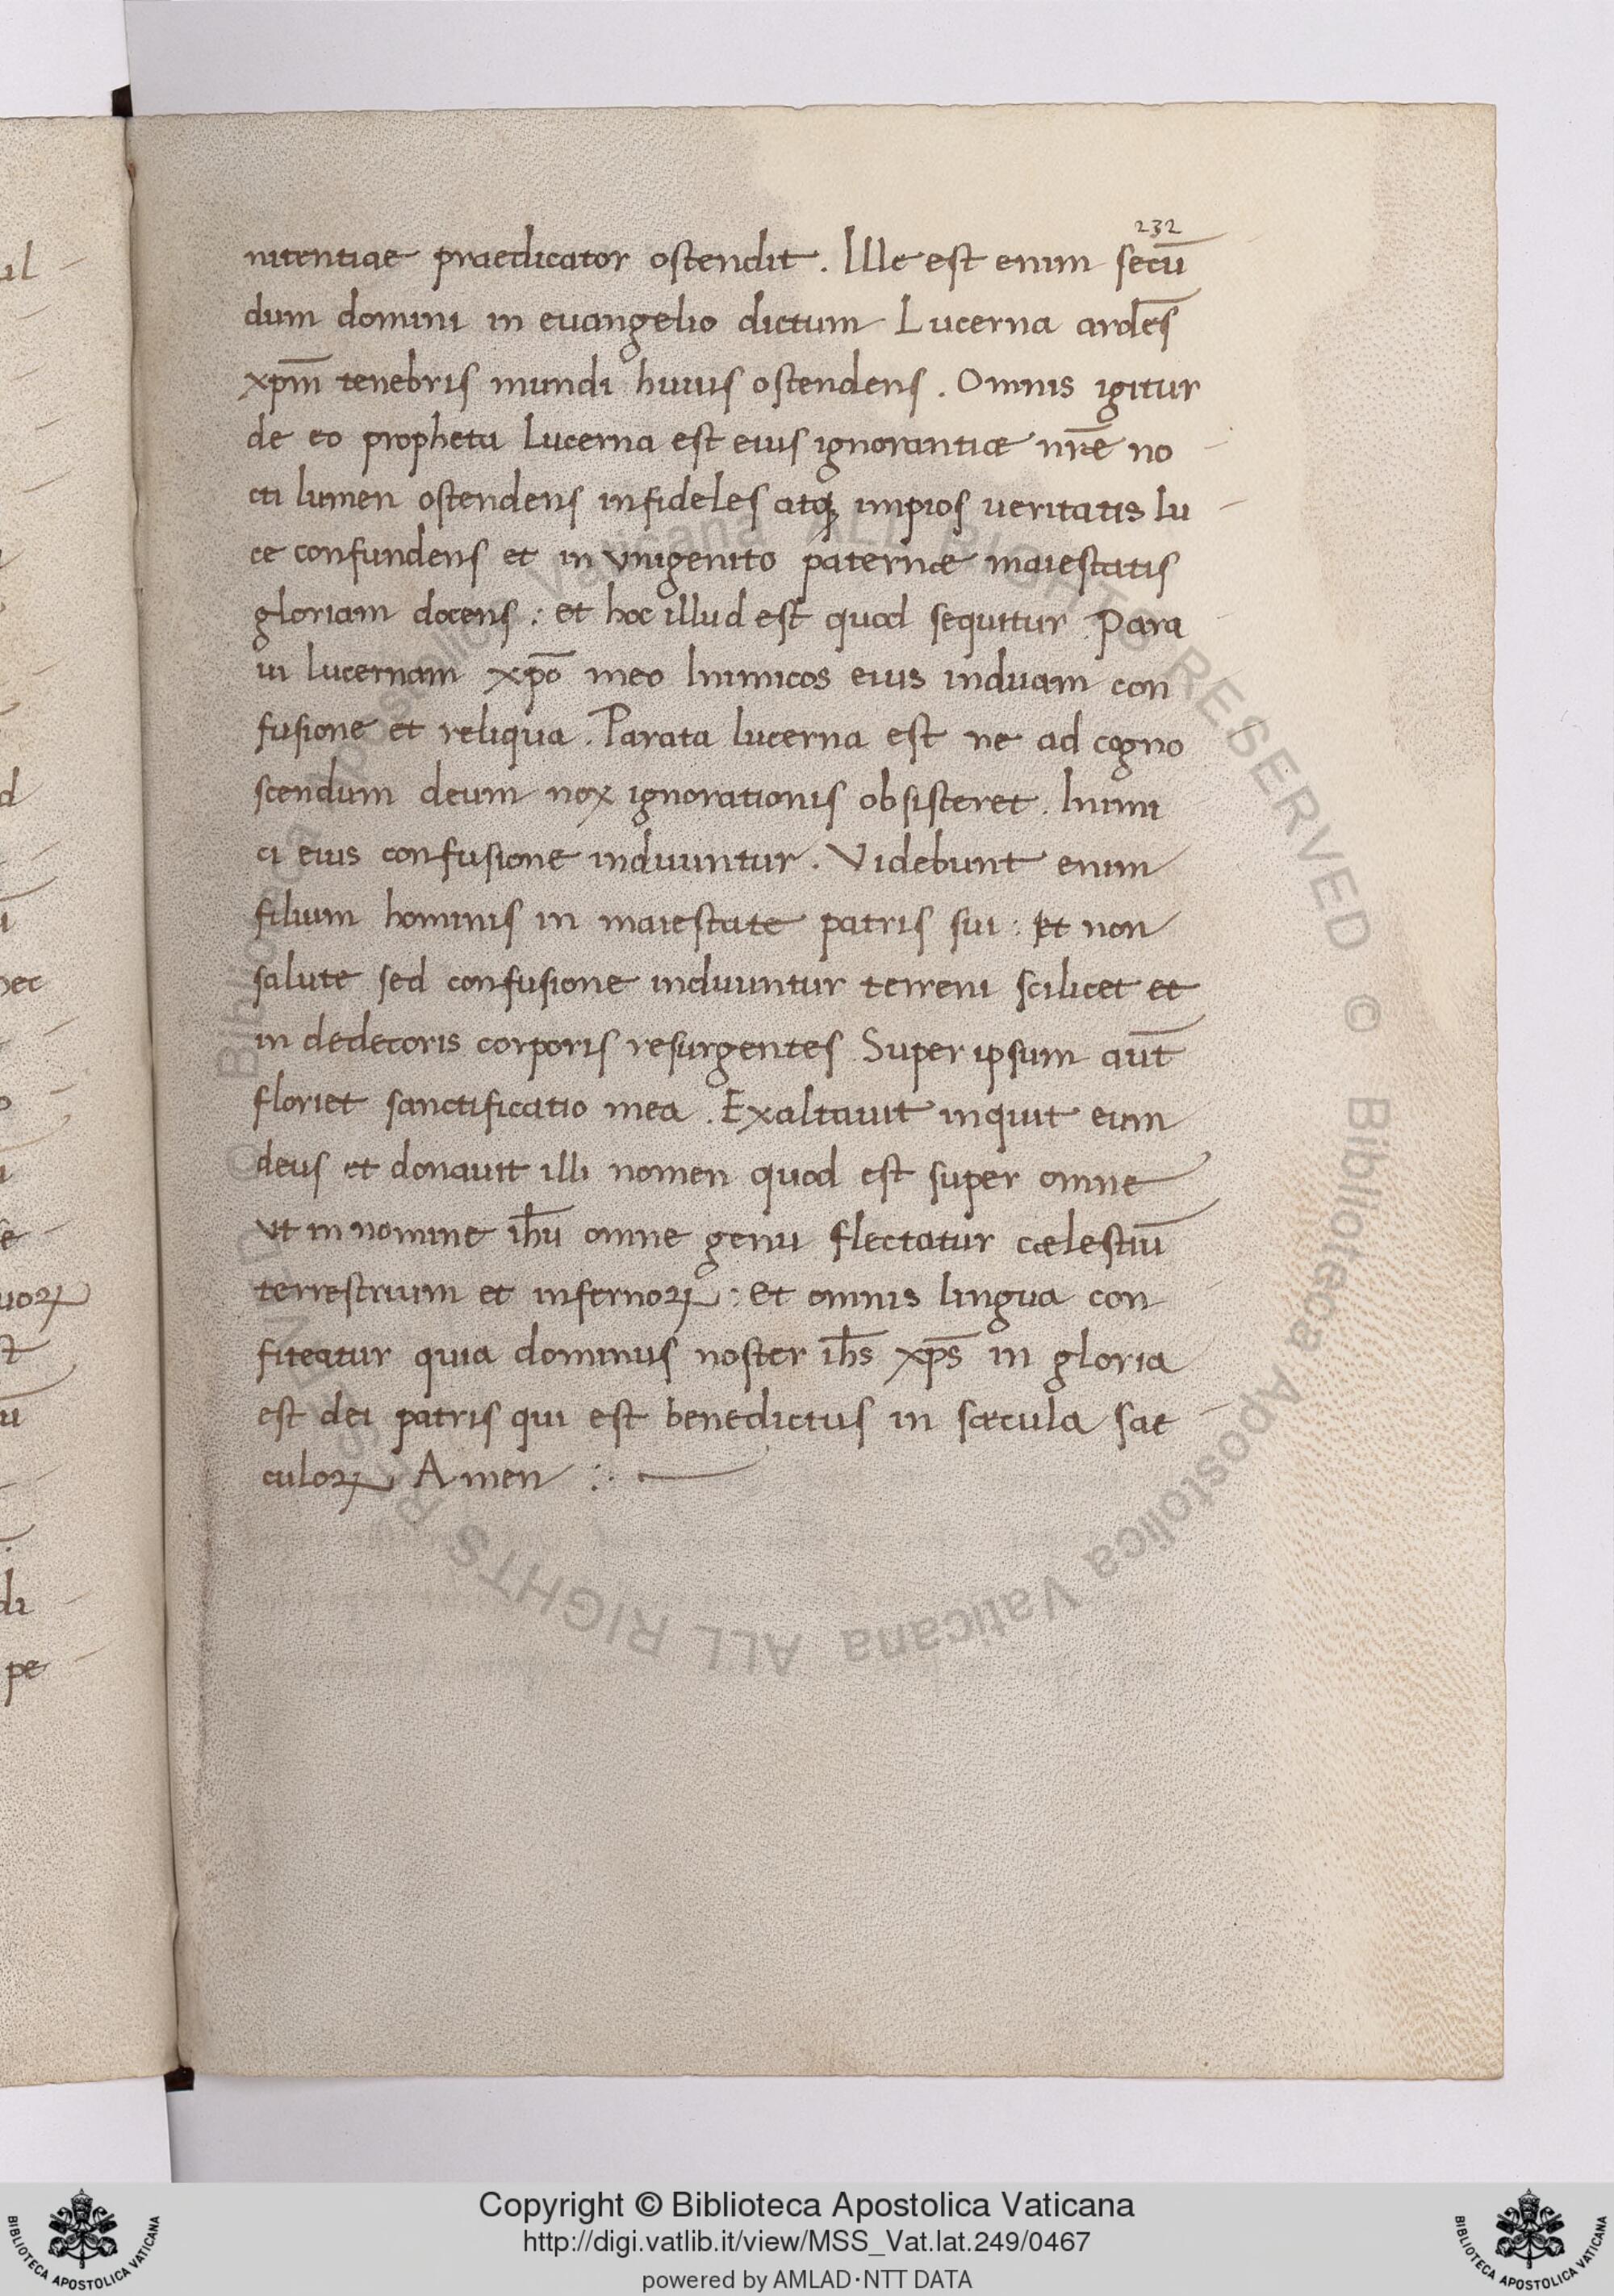 232
nitentiae praedicator ostendit. Ille est enim secū
dum domini in euangelio dictum Lucerna ardēs
xp̄m tenebris mundi huius ostendens. Omnis igitur
de eo propheta lucerna est eius ignorantiæ nr̄e no
cti lumen ostendens infideles atq; impios ueritatis lu
ce confundens et in vnigenito paternæ maiestatis
gloriam docens: et hoc illud est quod sequitur Para
ui lucernam xp̄o meo Inimicos eius induam con
fusione et reliqua. Parata lucerna est ne ad cogno
scendum deum nox ignorationis obsisteret. Inimi
ci eius confusione induuntur. Videbunt enim
filium hominis in maiestate patris sui: et non
salute sed confusione induuntur terreni scilicet et
in dedecoris corporis resurgentes Super ipsum aūt
floriet sanctificatio mea. Exaltauit inquit eum
deus et donauit illi nomen quod est super omne
vt in nomine ih̄u omne genu flectatur cælestiū
terrestrium et infernoꝝ: Et omnis lingua con
fiteatur quia dominus noster ih̄s xp̄s in gloria
est dei patris qui est benedictus in sæcula sae
culoꝝ Amen :·
il
d
nec
uoꝝ
di
pe
© Biblioteca Apostolica Vaticana ALL RIGHTS RESERVED © Biblioteca Apostolica Vaticana ALL RIGHTS RESERVED
Copyright © Biblioteca Apostolica Vaticana
http://digi.vatlib.it/view/MSS_Vat.lat.249/0467
powered by AMLAD·NTT DATA
BIBLIOTECA APOSTOLICA VATICANA
BIBLIOTECA APOSTOLICA VATICANA